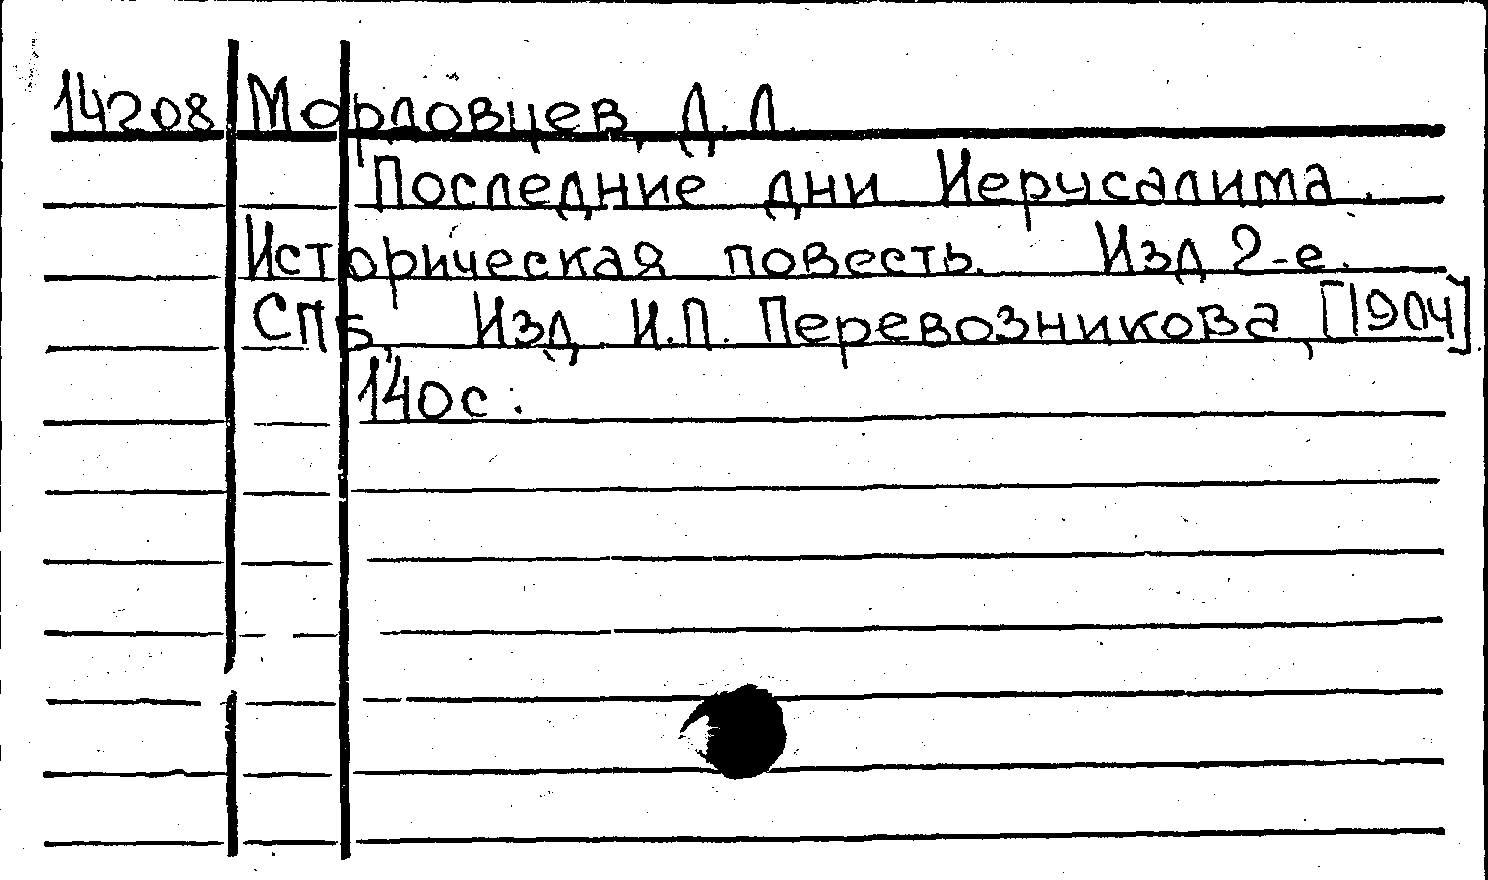 14208 Мордовцев, Д. Л.
Последние дни Иерусалима.
Историческая повесть. Изд 2-е.
СПБ, Изд. И.П. Перевозникова, [1904]
140 с.